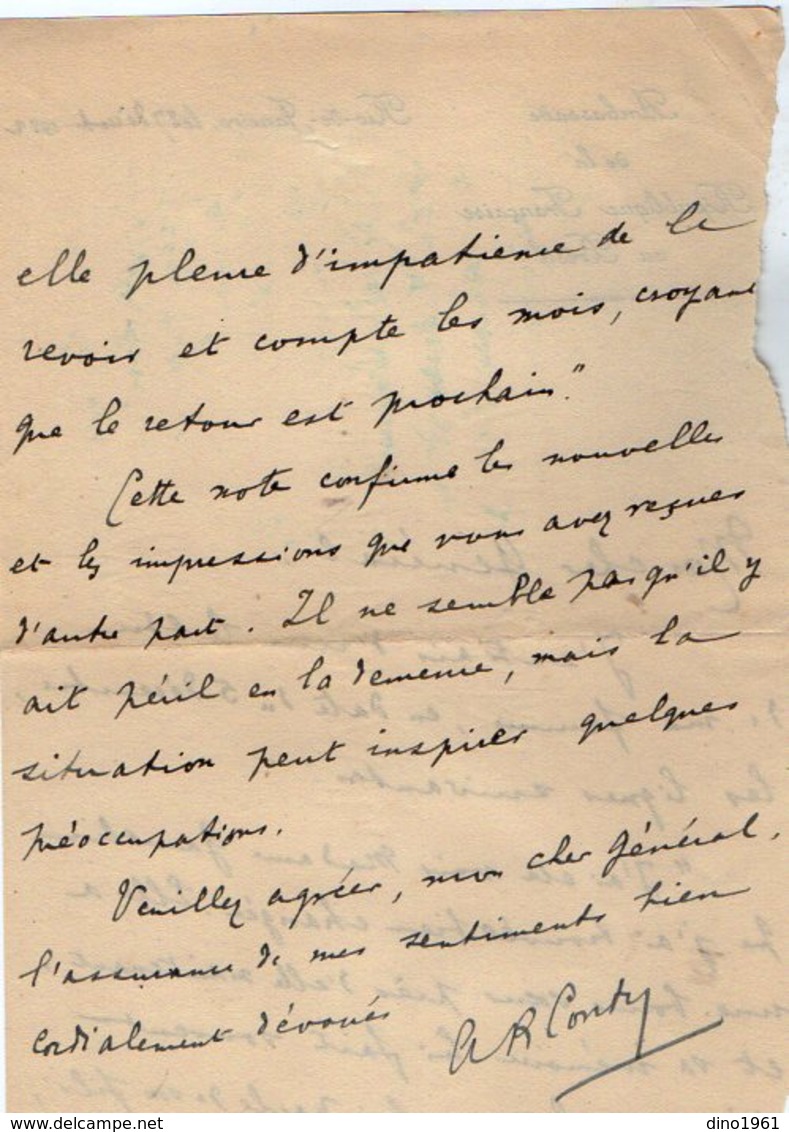 elle pleure d'impatience de le
revoir et compte les mois, croyant
que le retour est prochain."
Cette note confirme les nouvelles
et les impressions que vous avez reçues
d'autre part. Il ne semble pas qu'il y
ait péril en la demeure, mais la
situation peut inspirer quelques
préoccupations.
Veuillez agréer, mon cher Général,
l'assurance de mes sentiments bien
cordialement dévoués
A R Conty
dino1961